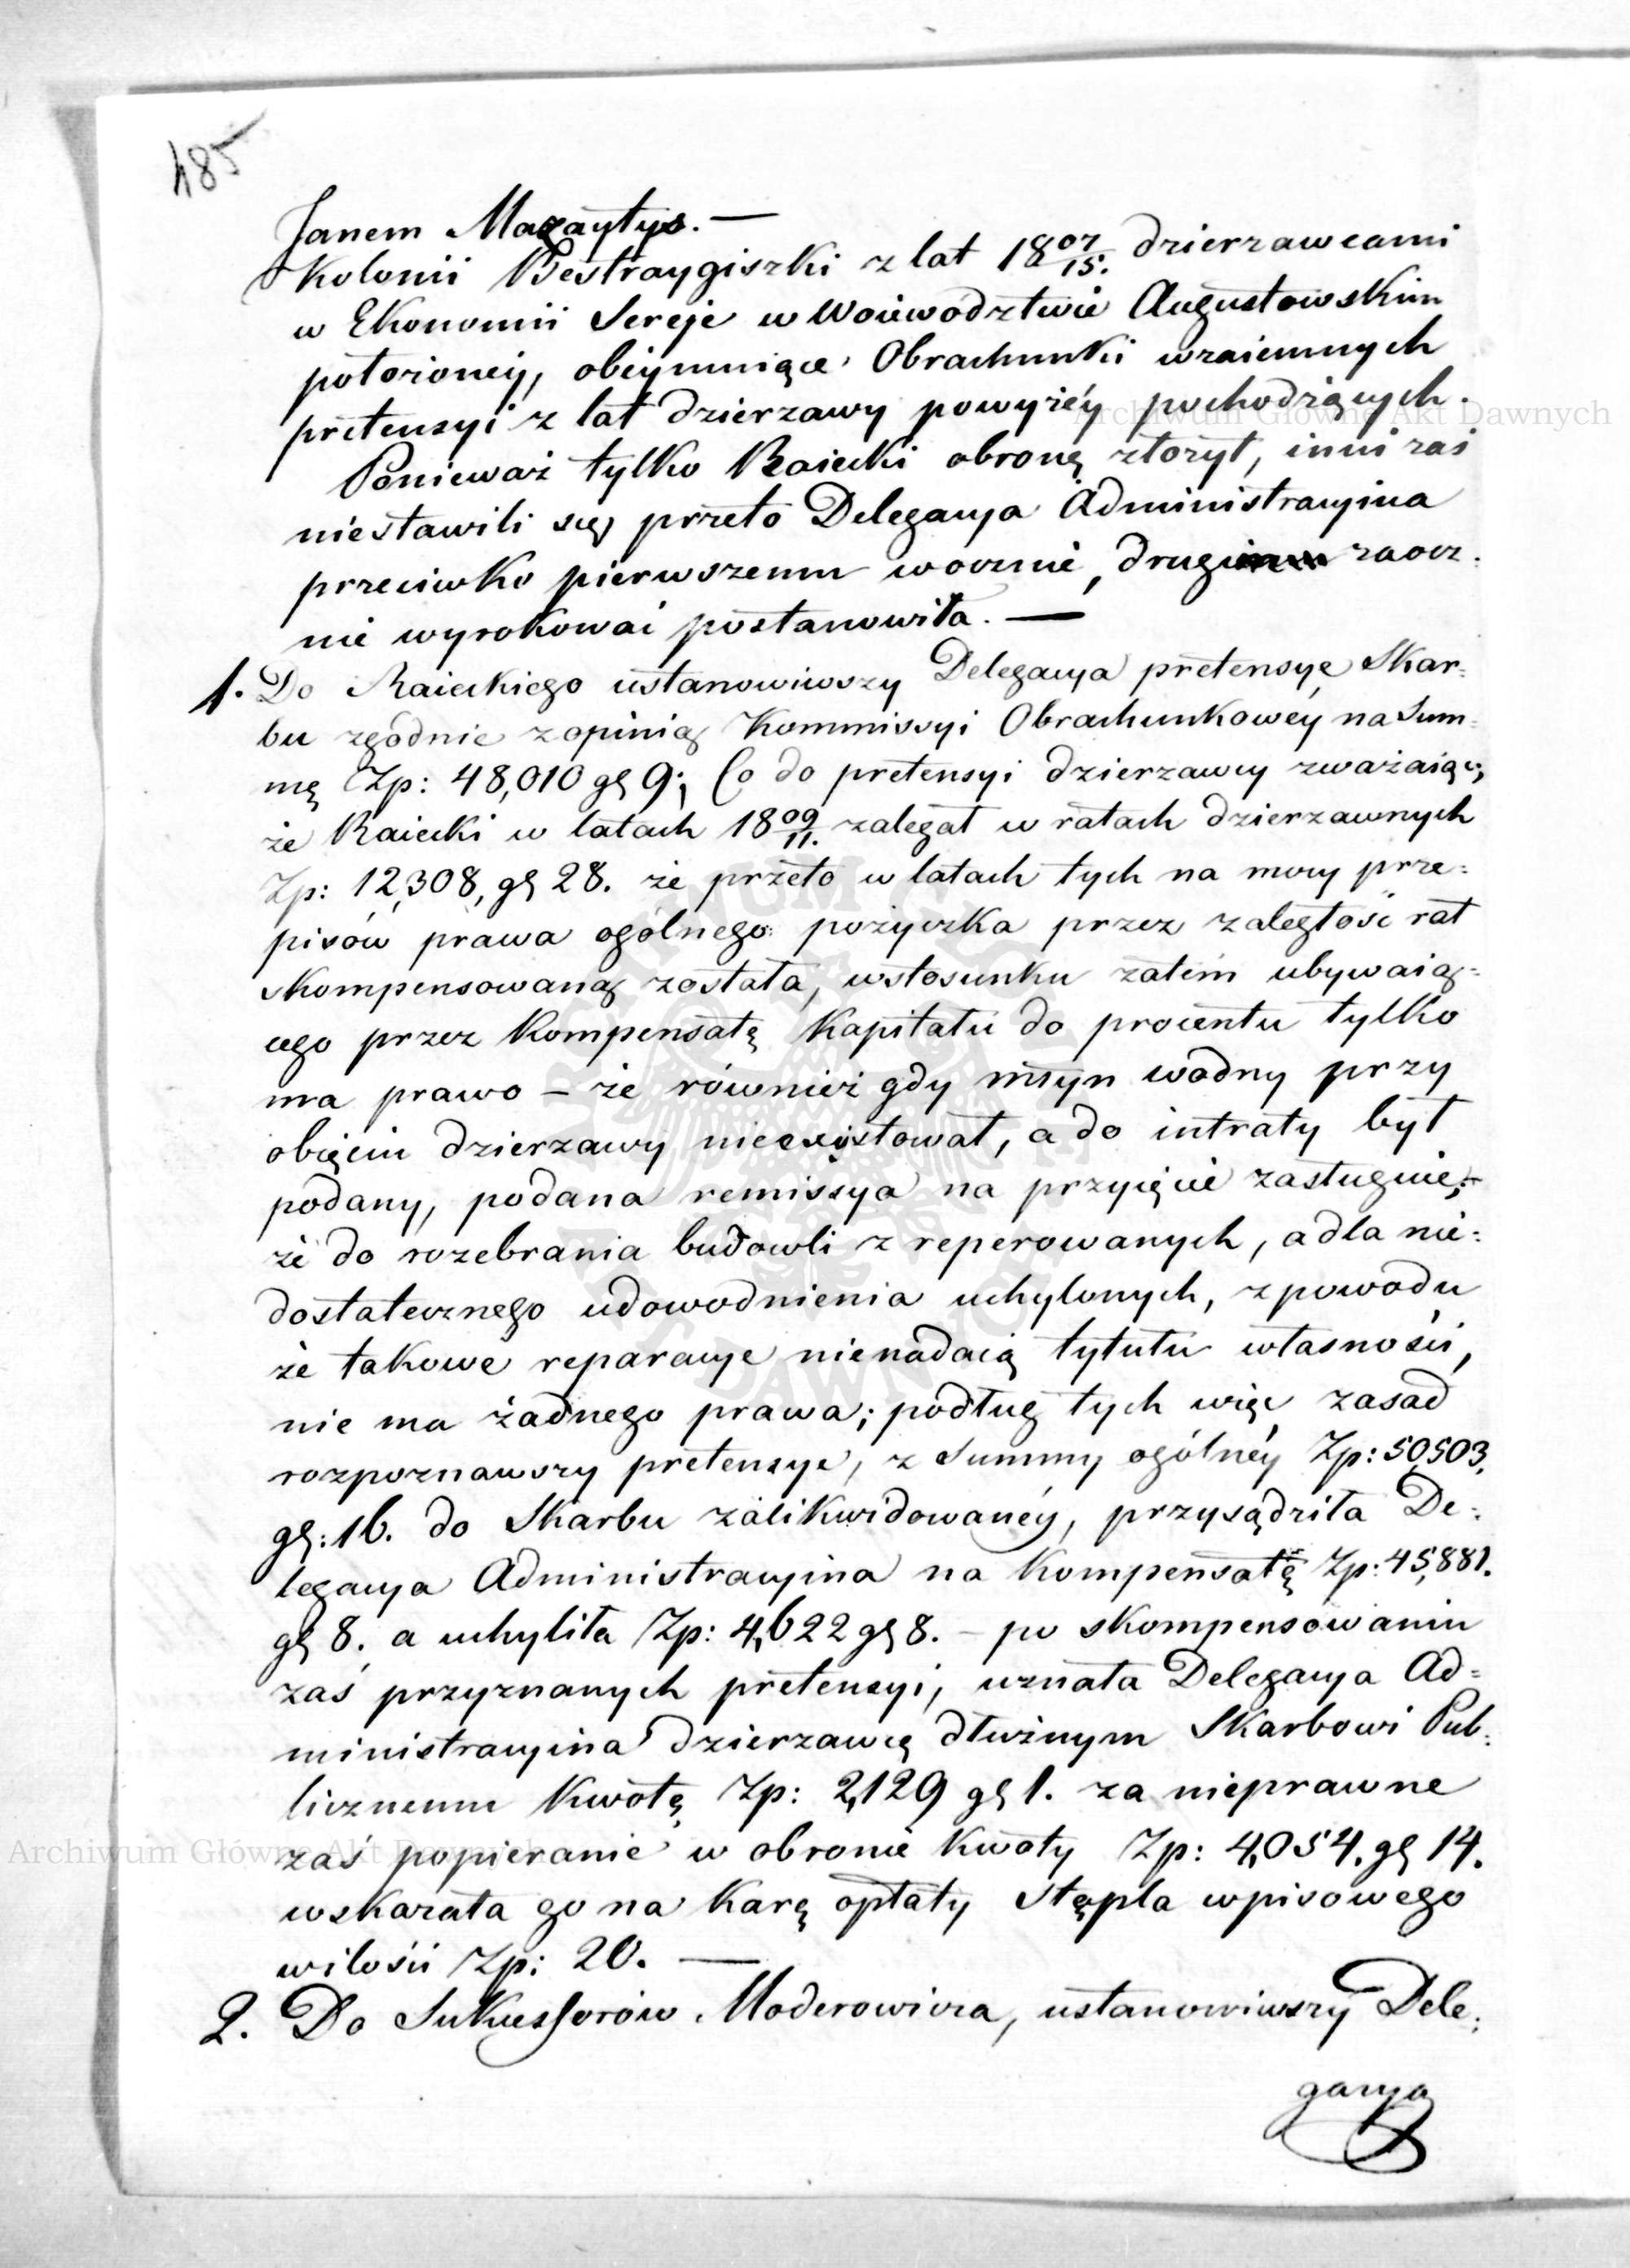 485
Janem Mazaytys. —
Kolonii Bestraygiszki z lat 18 07/15. dzierzawcami
w Ekonomii Sereje w Woiewodztwie Augustowskim
położoney, obeymuiące Obrachunki wzaiemnych
pretensyi z lat dzierzawy powyżéy pochodzących.
Ponieważ tylko Raiecki obronę złożył, inni zaś
niestawili się, przeto Delegacya Administracyina
przeciwko pierwszemu wocznie, drugim zaocz:
nie wyrokować postanowiła. —
1. Do Raieckiego ustanowiwszy Delegacya pretensyę Skar:
bu zgodnie z opinią Kommissyi Obrachunkowéy na Sum:
mę Zp: 48,010 gl 9; Co do pretensyi dzierzawcy zważaiąc;
że Raiecki w latach 18 09/11. zalegał w ratach dzierzawnych
Zp: 12,308, gl 28. że przeto w latach tych na mocy prze:
pisów prawa ogólnego pożyczka przez zaległość rat
skompensowaną została, wstosunku zatém ubywaią:
cego przez Kompensatę Kapitału do procentu tylko
ma prawo – że również gdy młyn wodny przy
obięciu dzierzawy nieexistował, a do intraty był
podany, podana remissya na przyięcie zasługuie; –
że do rozebrania budowli zreperowanych, a dla nie:
dostatecznego udowodnienia uchylonych, z powodu
że takowe reparacye nienadaią tytułu własności,
nie ma żadnego prawa; podług tych więc zasad
rozpoznawszy pretensye, z Summy ogólnéy Zp: 50,503,
gl: 16. do Skarbu zalikwidowanéy, przysądziła De:
legacya Administracyina na Kompensatę Zp: 45,881.
gl 8. a uchyliła Zp: 4,622 gl 8. – po skompensowaniu
zaś przyznanych pretensyi, uznała Delegacya Ad:
ministracyina dzierzawcę dłużnym Skarbowi Pub:
licznemu Kwotę Zp: 2,129 gl 1. za nieprawne
zaś popieranie w obronie Kwoty Zp: 4,054. gl 14.
wskazała go na Karę opłaty Stępla wpisowego
wilości Zp: 20. —
2. Do Sukcessorów Moderowicza, ustanowiwszy Dele:
gacya
Archiwum Główne Akt Dawnych
Archiwum Główne Akt Dawnych